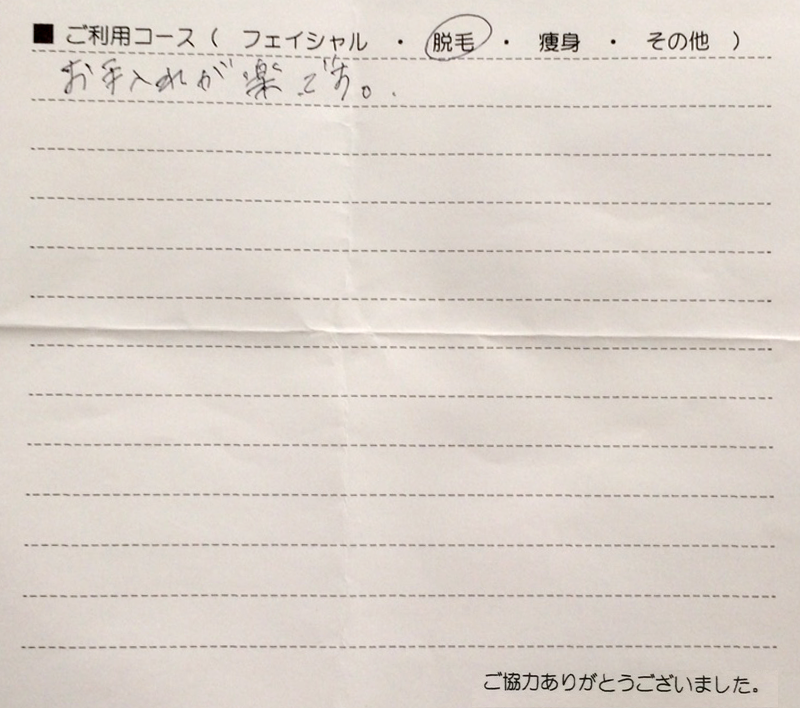 ■ ご利用コース（ フェイシャル ・ 脱毛 ・ 痩身 ・ その他 ）
お手入れが楽です。
ご協力ありがとうございました。